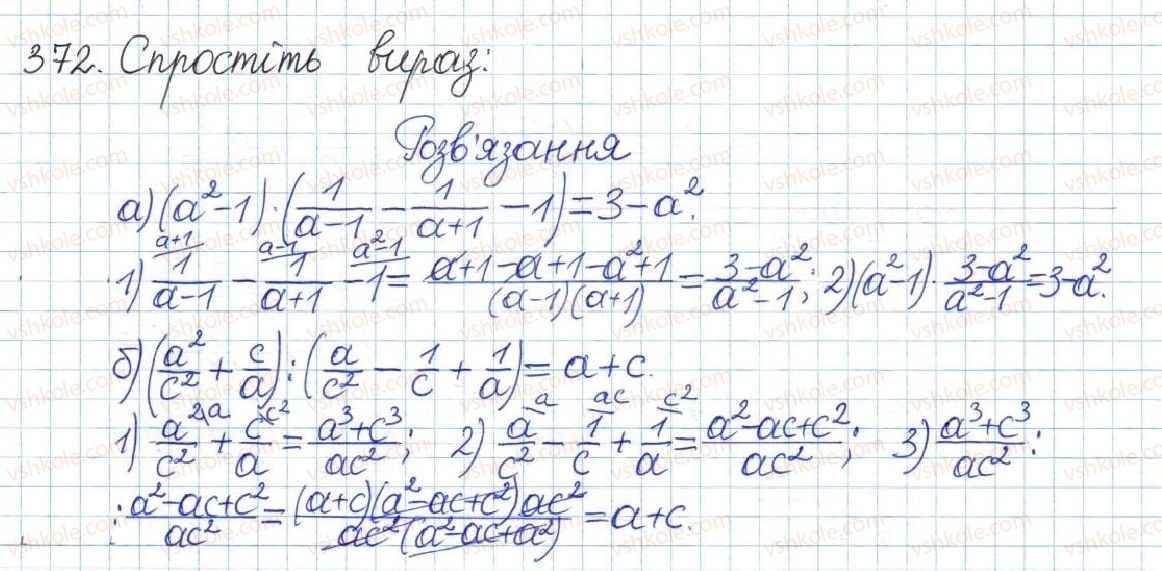 372. Спростіть вираз:
Розв'язання
а) (a²-1)·(1/(a-1) - 1/(a+1) - 1) = 3-a².
1) 1/(a-1) (a+1) - 1/(a+1) (a-1) - 1 (a²-1) = (a+1-a+1-a²+1)/((a-1)(a+1)) = (3-a²)/(a²-1); 2) (a²-1)·(3-a²)/(a²-1) = 3-a².
б) (a²/c² + c/a) : (a/c² - 1/c + 1/a) = a+c.
1) a²/c² (a) + c/a (c²) = (a³+c³)/(ac²); 2) a/c² (a) - 1/c (ac) + 1/a (c²) = (a²-ac+c²)/(ac²); 3) (a³+c³)/(ac²) :
: (a²-ac+c²)/(ac²) = ((a+c)(a²-ac+c²)ac²)/(ac²(a²-ac+a²)) = a+c.
vshkole.com